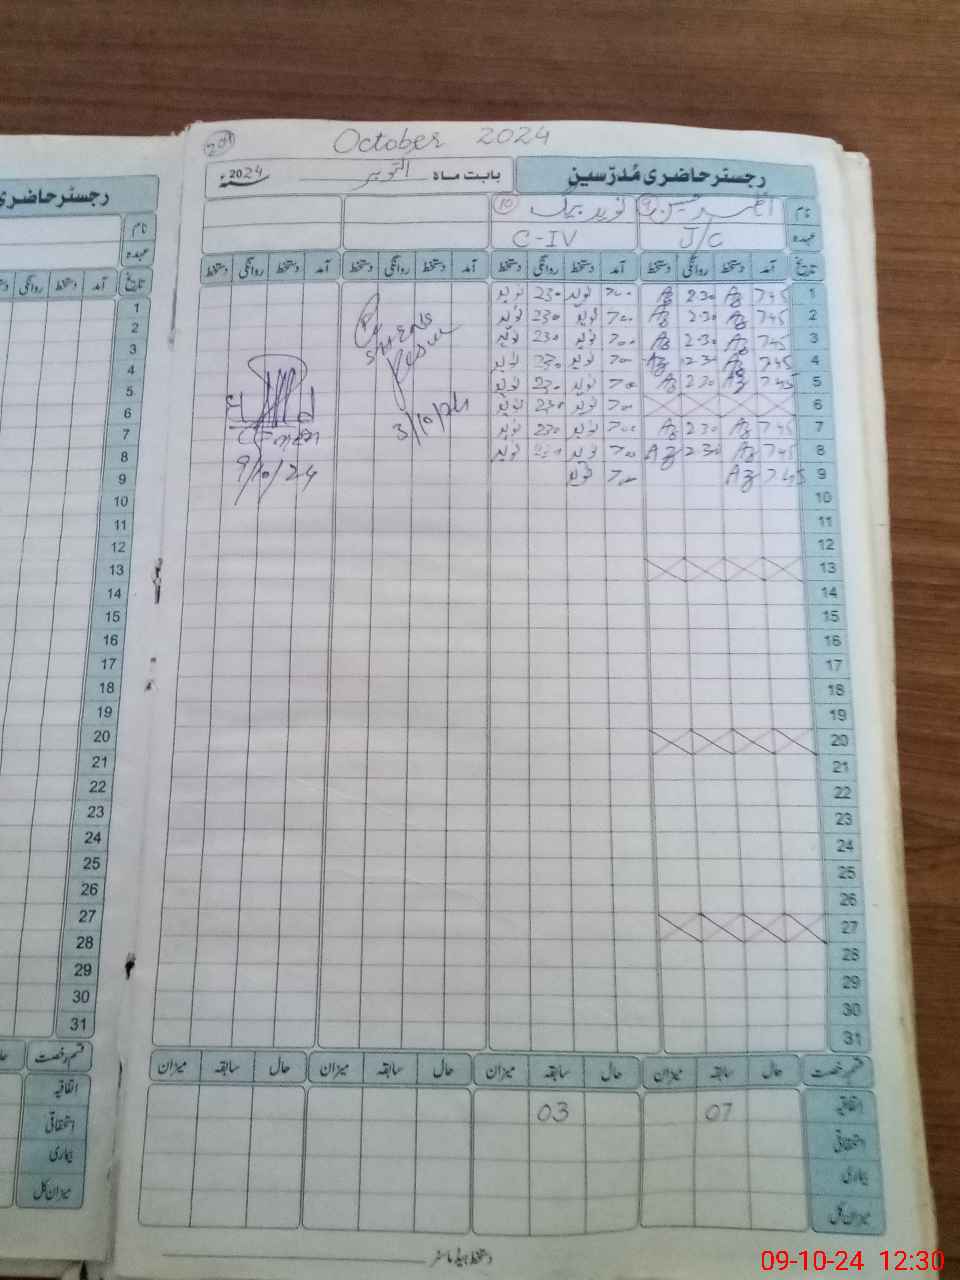 October 2024
رجسٹر حاضری مُدرّسین بابت ماہ اکتوبر 2024ء
نام نوید بیگ 10
عہدہ J/C C-IV
تاریخ آمد دستخط روانگی دستخط آمد دستخط روانگی دستخط آمد دستخط روانگی دستخط آمد دستخط روانگی دستخط
1 745 Az 230 Az 700 نوید 230 نوید
2 745 Az 230 Az 700 نوید 230 نوید
3 745 Az 230 Az 700 نوید 230 نوید
4 745 Az 230 Az 700 نوید 230 نوید
5 745 Az 230 Az 700 نوید 230 نوید
6 700 نوید 230 نوید
7 745 Az 230 Az 700 نوید 230 نوید
8 745 Az 230 Az 700 نوید 230 نوید
9 745 Az 700 نوید
3/10/24
9/10/24
10
11
12
13
14
15
16
17
18
19
20
21
22
23
24
25
26
27
28
29
30
31
قسم رخصت حال سابقہ میزان حال سابقہ میزان حال سابقہ میزان حال سابقہ میزان
اتفاقیہ 07 03
استحقاقی
بیماری
میزان کل
دستخط ہیڈ ماسٹر
رجسٹر حاضری
نام
عہدہ
تاریخ آمد دستخط روانگی
1
2
3
4
5
6
7
8
9
10
11
12
13
14
15
16
17
18
19
20
21
22
23
24
25
26
27
28
29
30
31
قسم رخصت
اتفاقیہ
استحقاقی
بیماری
میزان کل
09-10-24 12:30